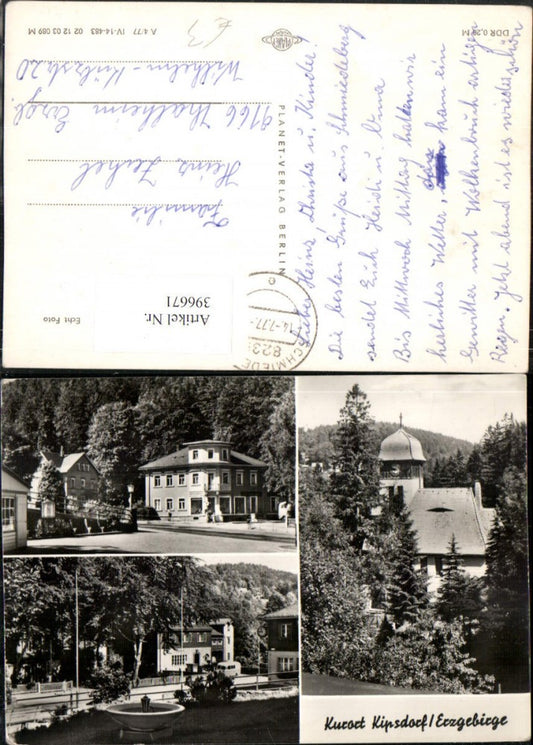 Liebe Heinz, Christa u. Kinder!
Die besten Grüße aus Schmiedeberg
sendet Euch Heidi u. Oma
Bis Mittwoch Mittag hatten wir
herrliches Wetter, kam ein
Gewitter mit Wolkenbruch artigen
Regen. Jetzt abend ist es wieder schön
PLANET-VERLAG BERLIN
Familie
Heinz
9166 Thalheim Erzgb
Wilhelm-Külzstr. 20
€3
DDR 0,20 M
A 4/77 IV-14-483 02 12 03 089 M
Echt Foto
Artikel Nr.
396671
SCHMIEDE
823
-7.77
Kurort Kipsdorf/Erzgebirge